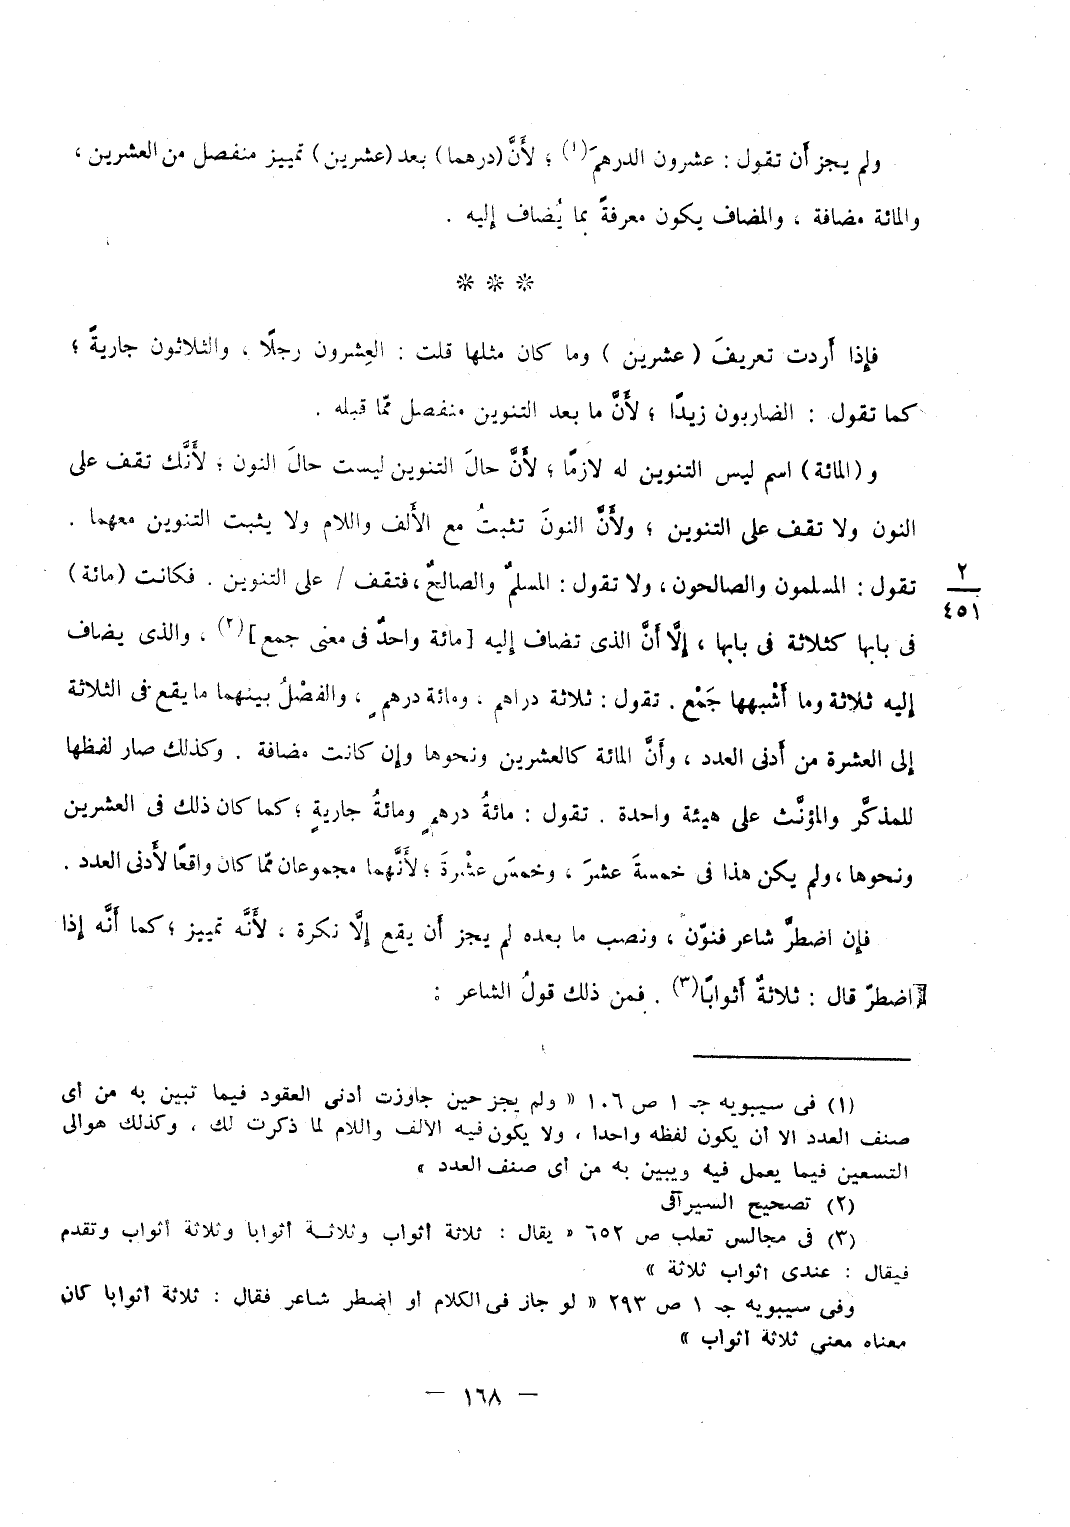 ولم يجز أن تقول : عشرون الدرهمَ(١) ؛ لأَنَّ (درهما) بعد (عشرين) تمييز منفصل من العشرين ،
والمائة مضافة ، والمضاف يكون معرفةً بما يُضاف إليه .
* * *
فإذا أردت تعريفَ ( عشرين ) وما كان مثلها قلت : العِشرون رجلًا ، والثلاثون جاريةً ؛
كما تقول : الضاربون زيدًا ؛ لأَنَّ ما بعد التنوين منفصل ممّا قبله .
و (المائة) اسم ليس التنوين له لازمًا ؛ لأَنَّ حالَ التنوين ليست حالَ النون ؛ لأَنَّك تقف على
النون ولا تقف على التنوين ؛ ولأَنَّ النونَ تثبتُ مع الأَلف واللام ولا يثبت التنوين معهما .
تقول : المسلمون والصالحون ، ولا تقول : المسلمٌ والصالحٌ ، فتقف / على التنوين . فكانت (مائة)
٢
٤٥١
فى بابها كثلاثة فى بابها ، إلَّا أَنَّ الذى تضاف إليه [مائة واحدٌ فى معنى جمع](٢) ، والذى يضاف
إليه ثلاثة وما أَشْبهها جَمْع . تقول : ثلاثة دراهم ، ومائة درهمٍ ، والفصْلُ بينهما ما يقع فى الثلاثة
إلى العشرة من أَدنى العدد ، وأَنَّ المائة كالعشرين ونحوها وإن كانت مضافة . وكذلك صار لفظها
للمذكَّر والمؤنَّث على هيئة واحدة . تقول : مائةُ درهمٍ ومائةُ جاريةٍ ؛ كما كان ذلك فى العشرين
ونحوها ، ولم يكن هذا فى خمسةَ عشرَ ، وخمسَ عشْرةَ ؛ لأَنَّهما مجموعان ممّا كان واقعًا لأَدنى العدد .
فإن اضطرَّ شاعر فنوّن ، ونصب ما بعده لم يجز أن يقع إلَّا نكرة ، لأَنَّه تمييز ؛ كما أَنَّه إذا
اضطرّ قال : ثلاثةٌ أَثوابًا(٣) . فمن ذلك قولُ الشاعر :
(١) فى سيبويه جـ ١ ص ١٠٦ « ولم يجز حين جاوزت أدنى العقود فيما تبين به من أى
صنف العدد الا أن يكون لفظه واحدا ، ولا يكون فيه الألف واللام لما ذكرت لك ، وكذلك هوالى
التسعين فيما يعمل فيه ويبين به من أى صنف العدد »
(٢) تصحيح السيرآفى
(٣) فى مجالس ثعلب ص ٦٥٢ « يقال : ثلاثة أثواب وثلاثة أثوابا وثلاثة أثواب وتقدم
فيقال : عندى أثواب ثلاثة »
وفى سيبويه جـ ١ ص ٢٩٣ « لو جاز فى الكلام أو اضطر شاعر فقال : ثلاثة أثوابا كان
معناه معنى ثلاثة أثواب »
— ١٦٨ —